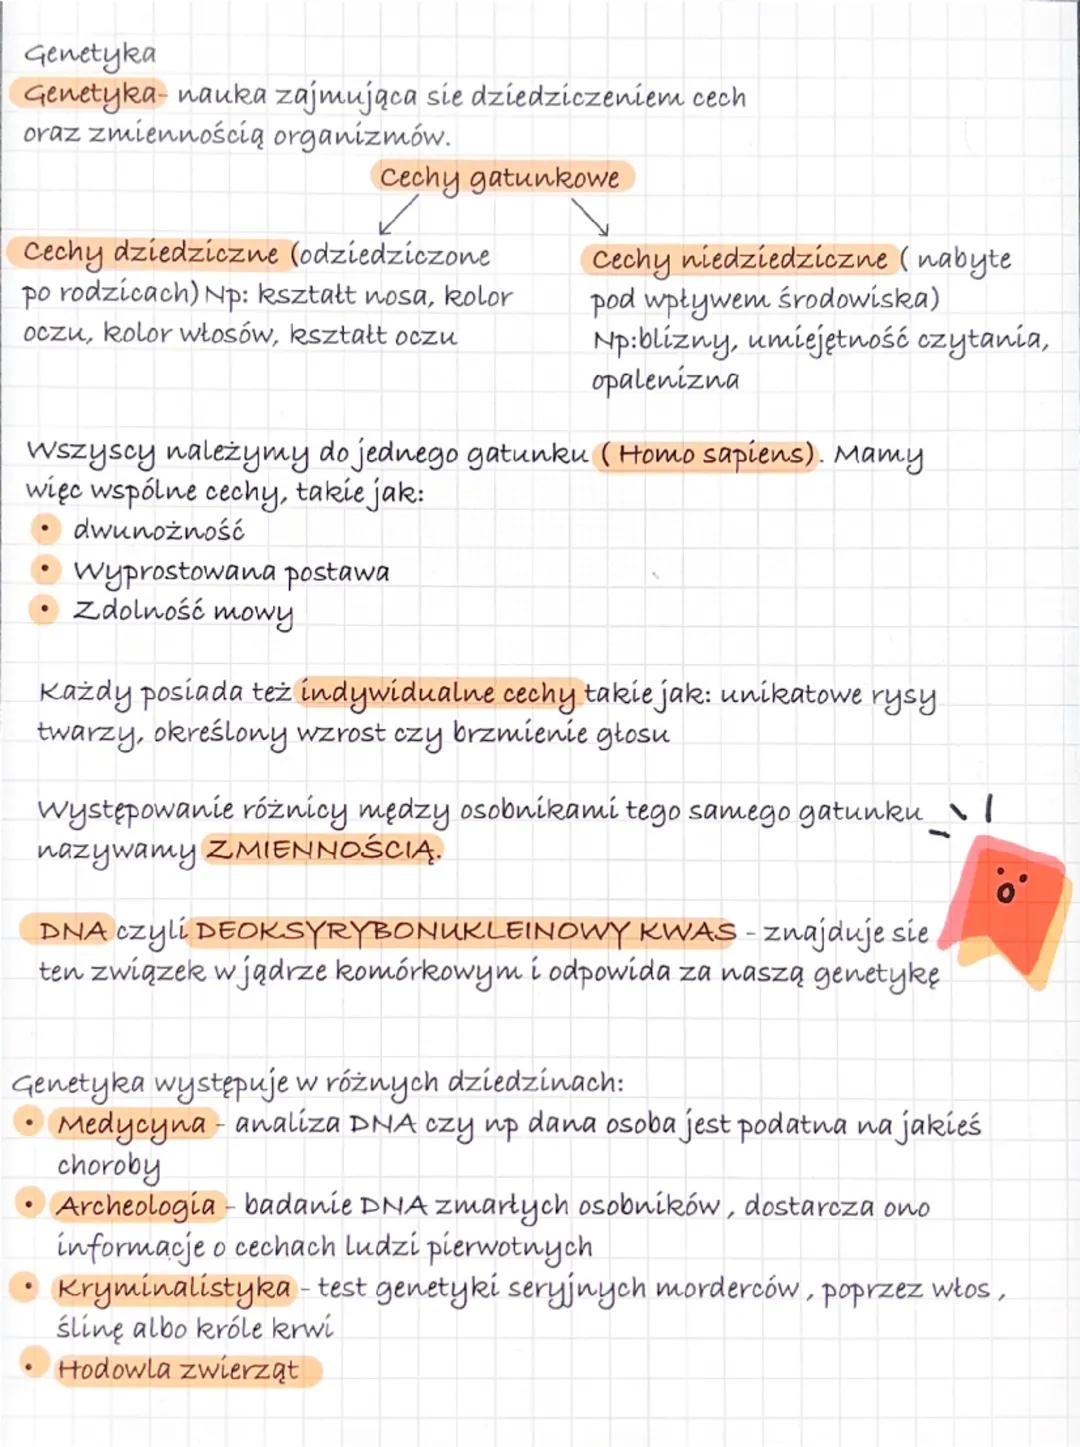 Genetyka
Genetyka- nauka zajmująca sie dziedziczeniem cech
oraz zmiennością organizmów.
Cechy gatunkowe
Cechy dziedziczne (odziedziczone
po rodzicach) Np: kształt nosa, kolor
oczu, kolor włosów, kształt oczu
Cechy niedziedziczne ( nabyte
pod wpływem środowiska)
Np:blizny, umiejętność czytania,
opalenizna
Wszyscy należymy do jednego gatunku ( Homo sapiens). Mamy
więc wspólne cechy, takie jak:
• dwunożność
• Wyprostowana postawa
• Zdolność mowy
Każdy posiada też indywidualne cechy takie jak: unikatowe rysy
twarzy, określony wzrost czy brzmienie głosu
Występowanie różnicy mędzy osobnikami tego samego gatunku
nazywamy ZMIENNOŚCIĄ.
DNA czyli DEOKSYRYBONUKLEINOWY KWAS - znajduje sie
ten związek w jądrze komórkowym i odpowida za naszą genetykę
Genetyka występuje w różnych dziedzinach:
• Medycyna - analiza DNA czy np dana osoba jest podatna na jakieś
choroby
• Archeologia - badanie DNA zmarłych osobników , dostarcza ono
informacje o cechach ludzi pierwotnych
• Kryminalistyka - test genetyki seryjnych morderców , poprzez włos ,
ślinę albo króle krwi
• Hodowla zwierząt